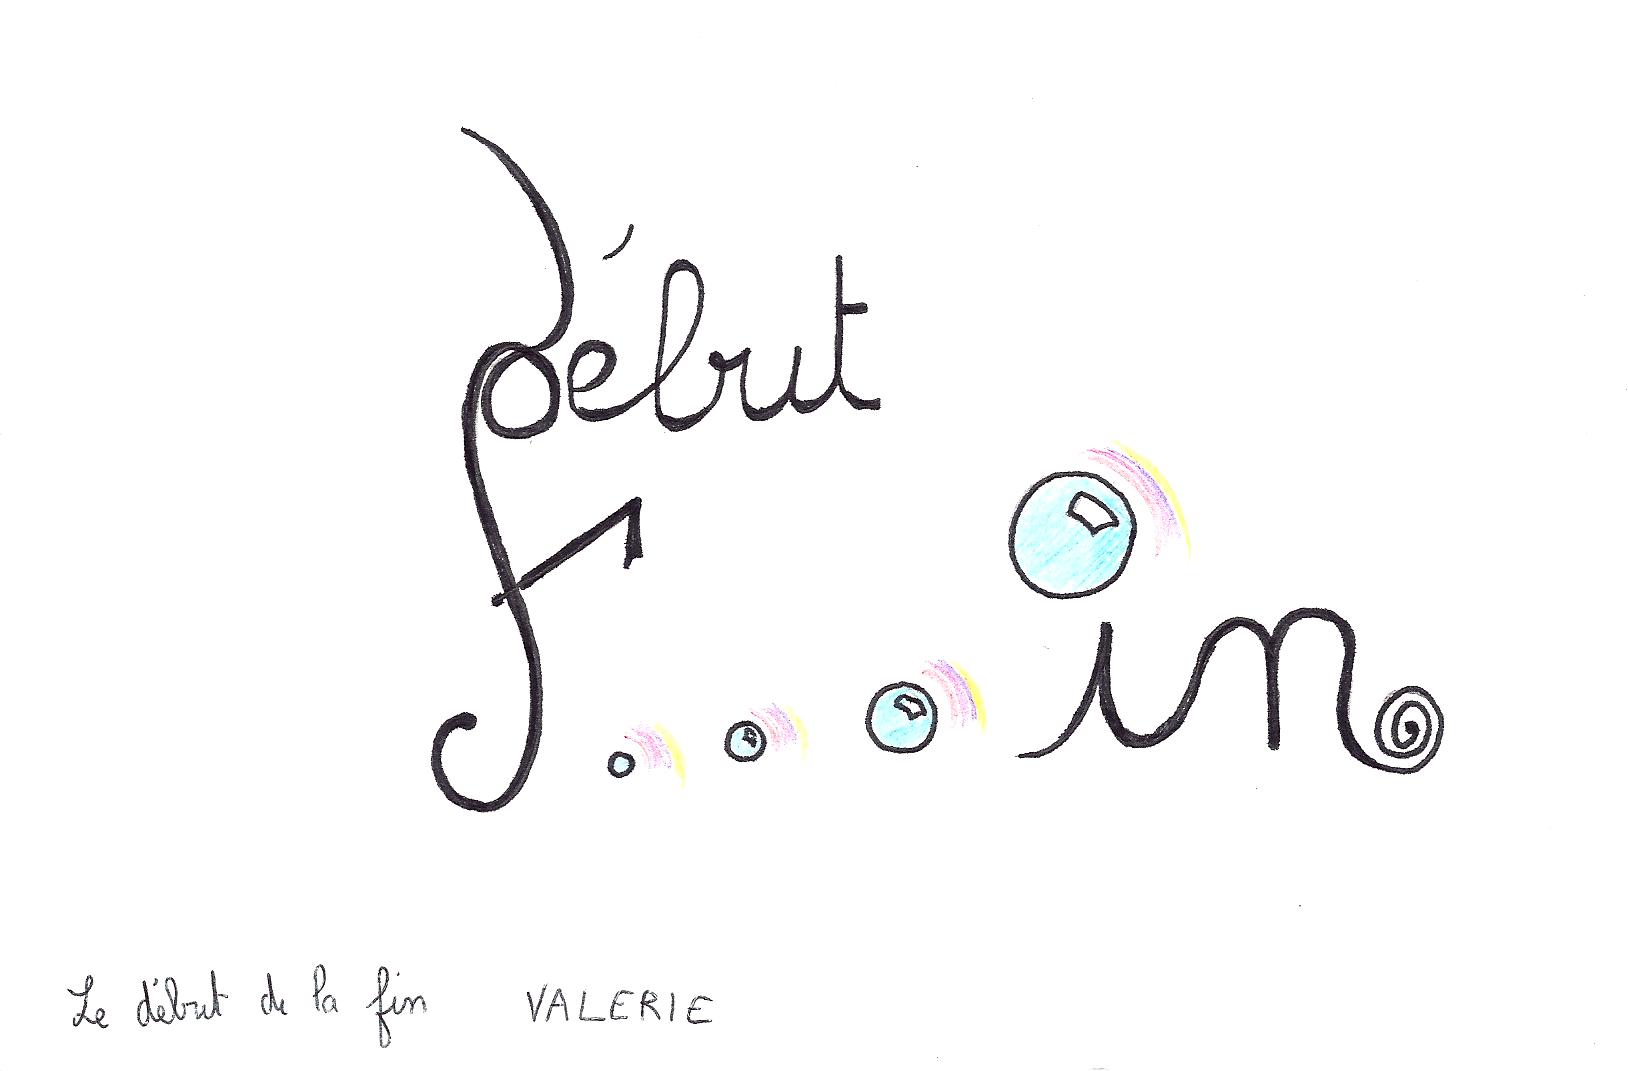 début
f...in
Le début de la fin VALERIE